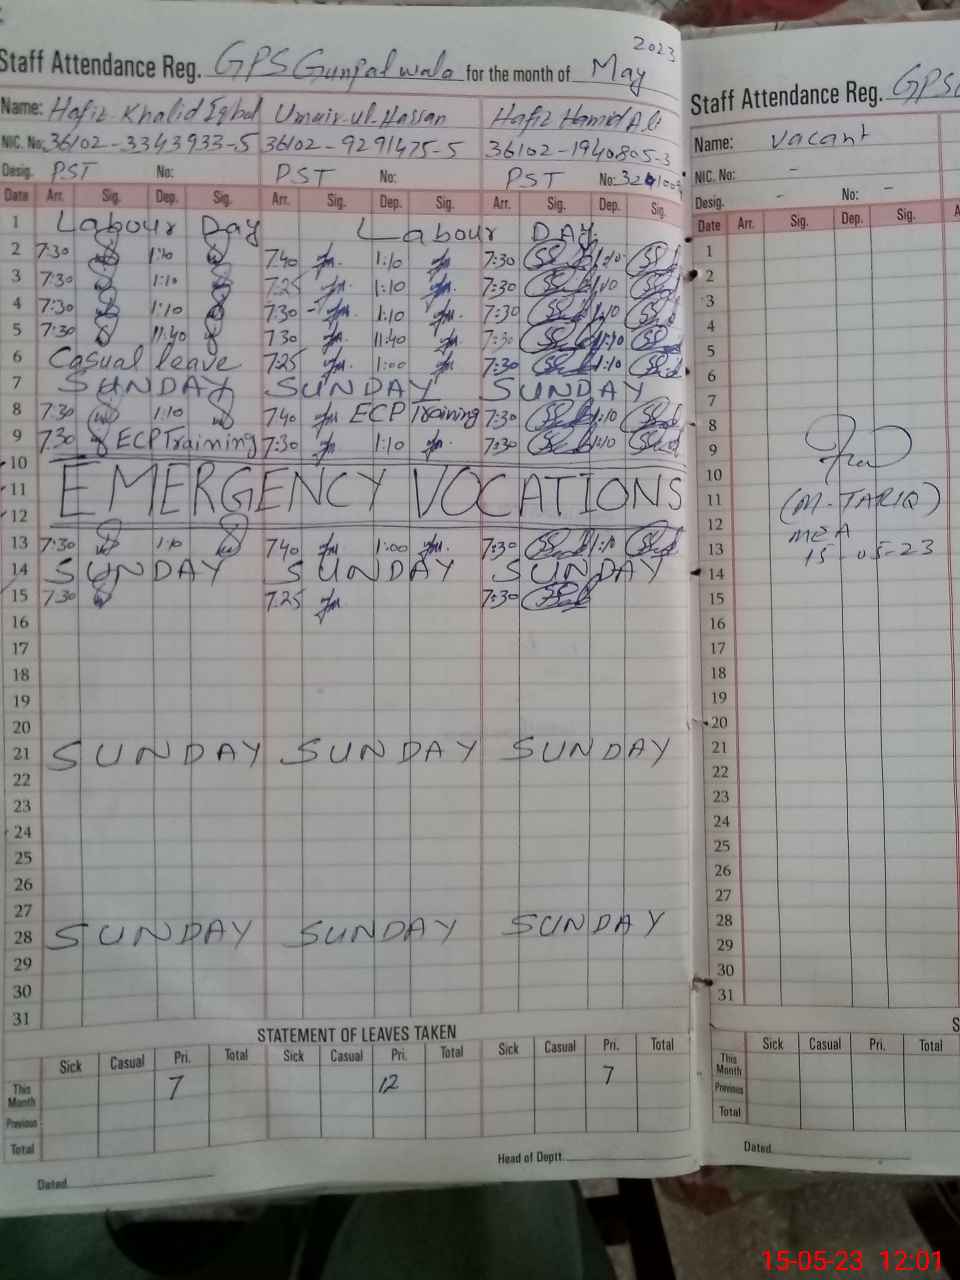 2023
Staff Attendance Reg. GPS Gunpalwala for the month of May
Name: Hafiz Khalid Iqbal Umair-ul-Hassan Hafiz Hamid Ali
NIC. No: 36102-3343933-5 36102-9291475-5 36102-1940805-3
Desig. PST No: PST No: PST No:
Date Arr. Sig. Dep. Sig. Arr. Sig. Dep. Sig. Arr. Sig. Dep. Sig.
1 Labour Day Labour DAY
2 7:30 1:10 7:40 1:10 7:30 1:10
3 7:30 1:10 7:25 1:10 7:30 1:10
4 7:30 1:10 7:30 1:10 7:30 1:10
5 7:30 11:40 7:30 11:40 7:30
6 Casual leave 7:25 1:00 7:30 1:10
7 SUNDAY SUNDAY SUNDAY
8 7:30 1:10 7:40 ECP Training 7:30 1:10
9 7:30 ECP Training 7:30 1:10 7:30 1:10
10
11 EMERGENCY VOCATIONS
12
13 7:30 1:10 7:40 1:00 7:30 1:10
14 SUNDAY SUNDAY SUNDAY
15 7:30 7:25 7:30
16
17
18
19
20
21 SUNDAY SUNDAY SUNDAY
22
23
24
25
26
27
28 SUNDAY SUNDAY SUNDAY
29
30
31
STATEMENT OF LEAVES TAKEN
Sick Casual Pri. Total Sick Casual Pri. Total Sick Casual Pri. Total
This Month 7 12 7
Previous
Total
Head of Deptt.
Dated
Staff Attendance Reg. GPS
Name: vacant
NIC. No: -
Desig. - No: -
Date Arr. Sig. Dep. Sig. A
1
2
3
4
5
6
7
8
9
10
11 (M-TARIQ)
12 MEA
13 15-05-23
14
15
16
17
18
19
20
21
22
23
24
25
26
27
28
29
30
31
S
Sick Casual Pri. Total
This Month
Previous
Total
Dated
15-05-23 12:01